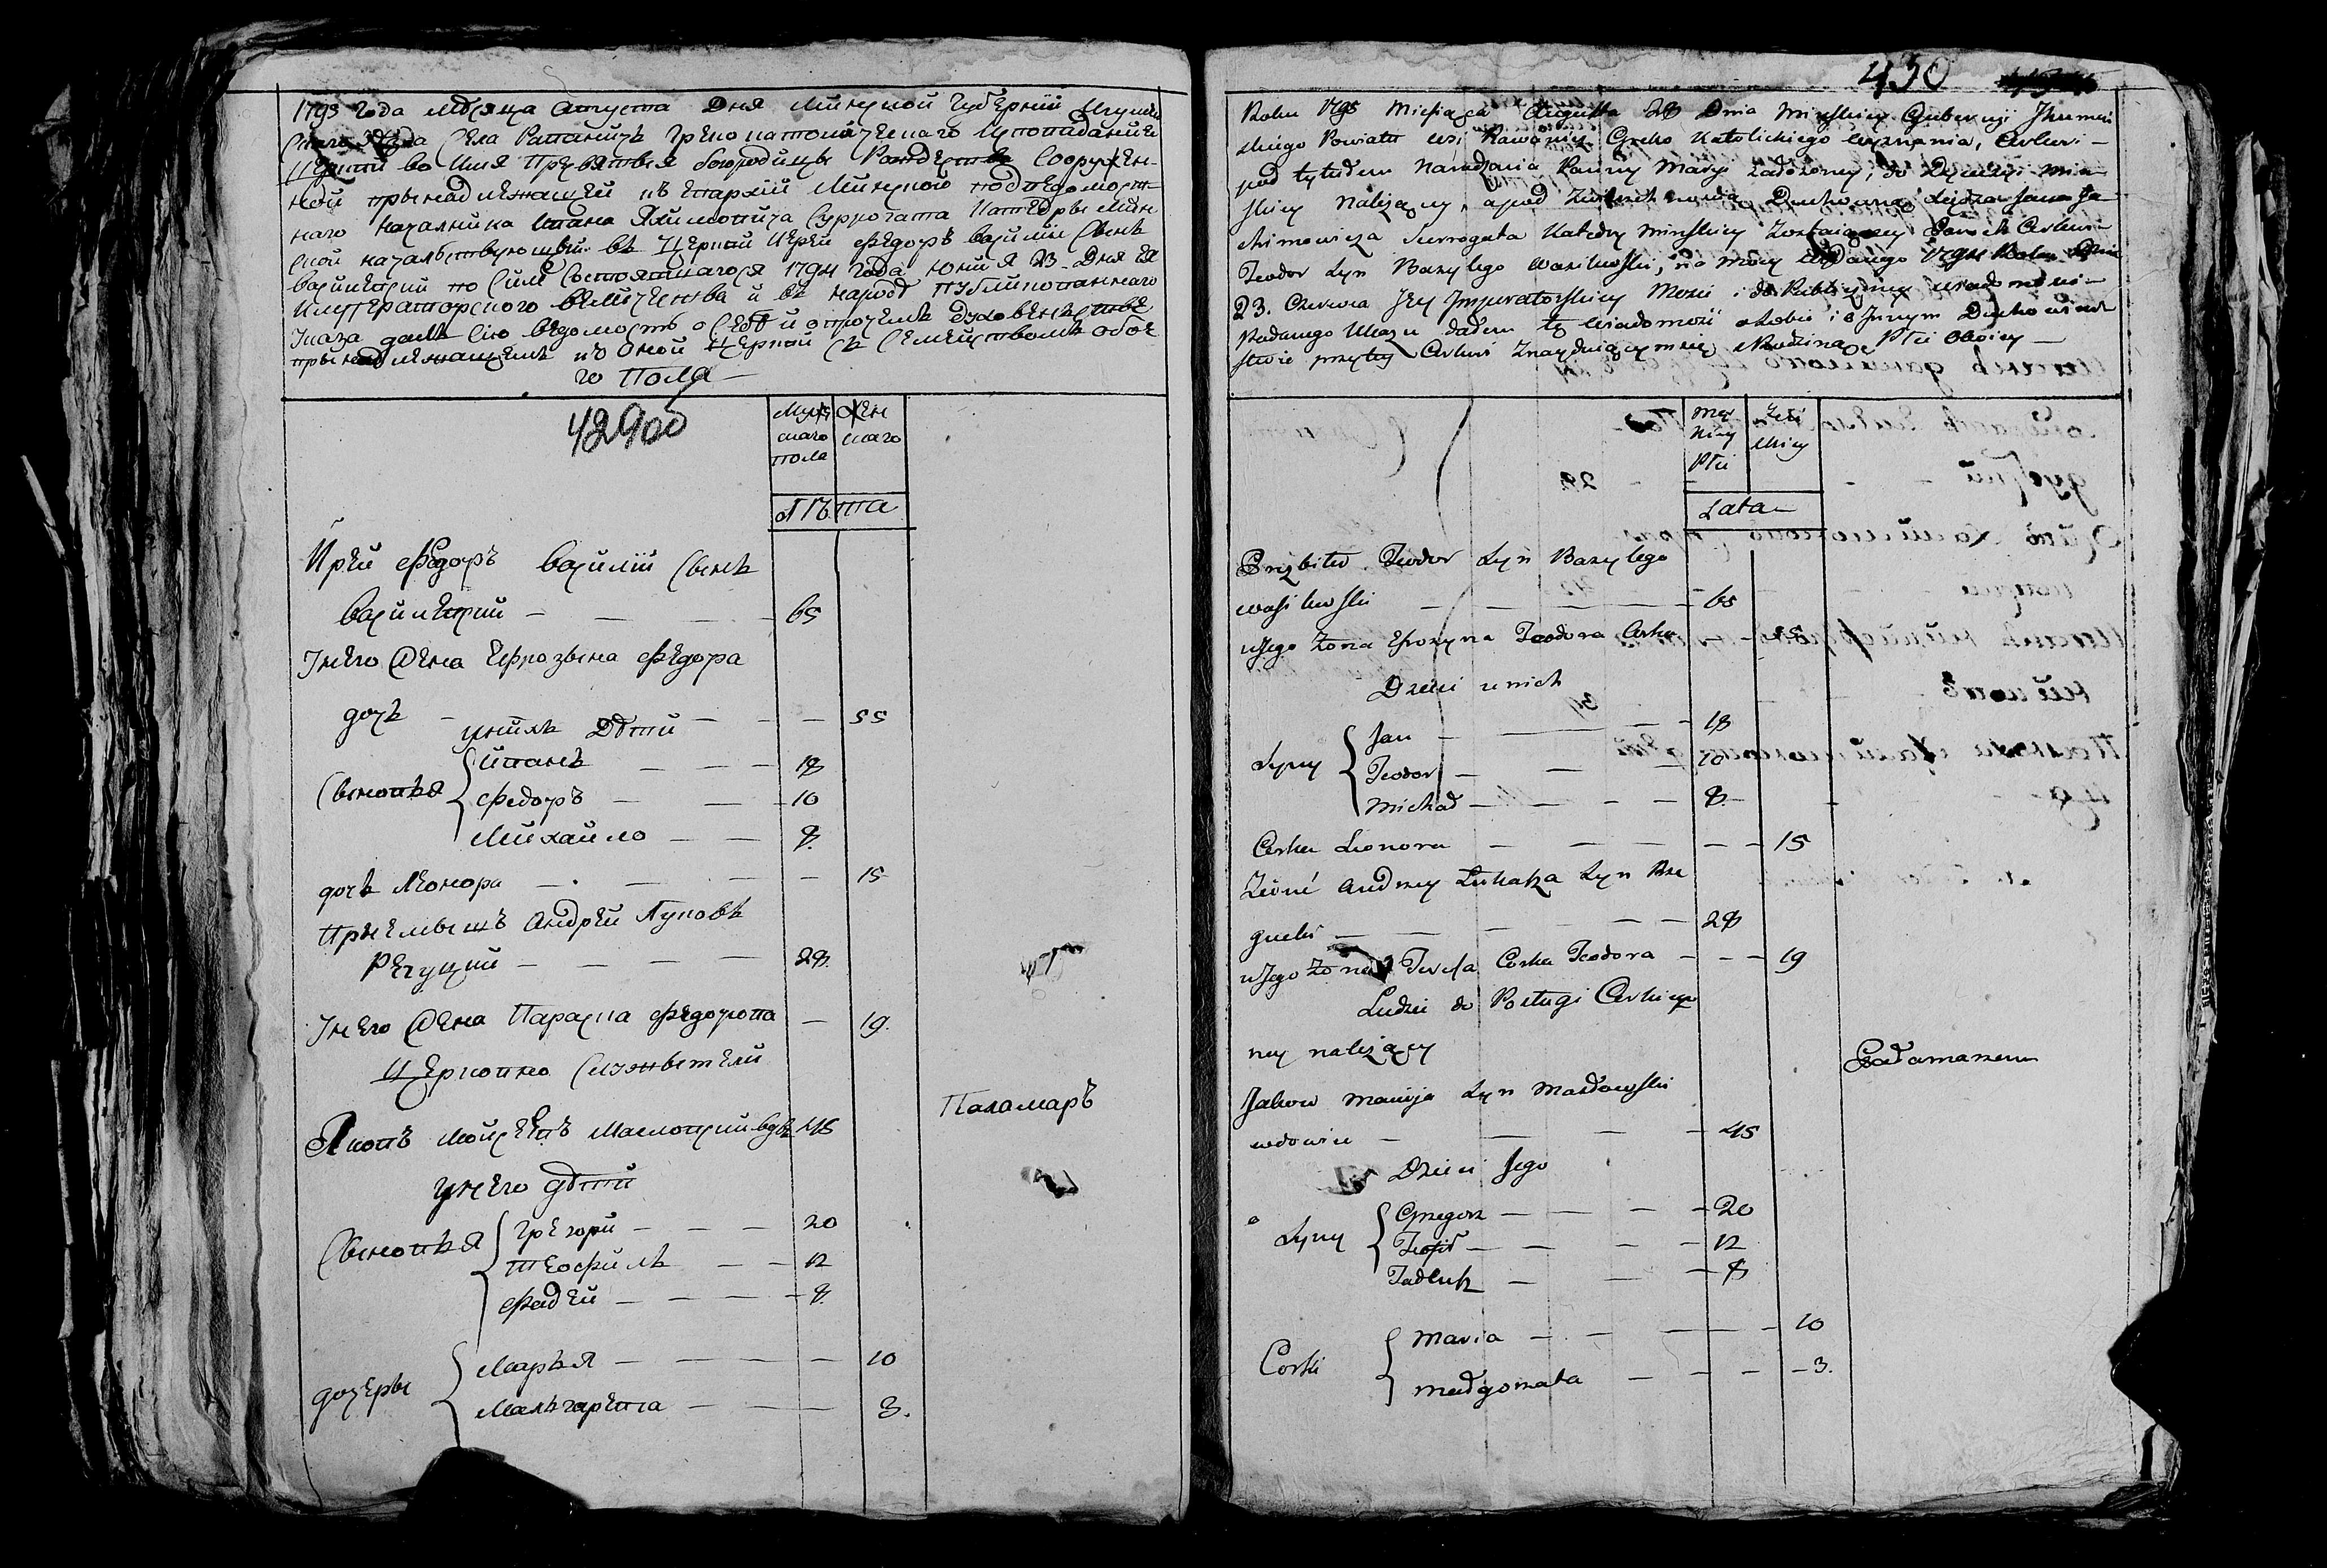 1795 года мѣсяца Августа Дня Минской Губернии Игумен
скаго уезда села Раваничъ Греко католическаго исповѣданія
Церкви во Имя Пресвятыя богородицы Рождества Сооружен-
ной принадлежащей къ Епархіи Минской подведомост-
наго Началника Ивана Яхимовича Суррогата Катедры Мин
ской началствующій въ Церкви Иерей Федоръ Василіи Сынъ
Василевский по Силе Состоявшагося 1794 года Юнія 23 Дня Ея
Императорского величества и въ народ публикованнаго
Указа далъ Сію ведомость о Себѣ и о прочемъ духовенстве
принадлежащемъ къ Оной Церкви Съ Семействомъ обое
го Пола
42900
Мужс
каго
пола
Жен
скаго
Лѣта
Иреи Федоръ Василіи Сынъ
Василевский 65
У него Жена Ефрозына Федора
дочь 55
у нихъ Дѣти
Сыновья
Иванъ 18
Федоръ 10
Михаило 8
дочь Леонора 15
Приемышъ Андреи Луковъ
Речуцкий 28
У него Жена Параска Федорова 19
Церковно Служытели
Яковъ Моисеевъ Масловский вдовъ 45 Паламаръ
у него дѣти
Сыновья
Грегори 20
Теофиль 12
Фадеи 8
дочеры
Марья 10
Мальгарета 3.
450
Roku 1795 Miesiąca Augusta 28 Dnia Minskiey Gubernji Jhumeń
skiego Powiatu wsi Rawanicz Greko Katolickiego wyznania, Cerkwi
pod tytułem Narodzenia Panny Maryi założoney, do Dyecezyi Miń
skiey należącey, a pod Zwierzchnością Duchowną Xiędza Jana Ja
chimowicza Surrogata Katedry Minskiey zostaiącey Paroch Cerkwi
Teodor Syn Bazylego Wasilewski, na mocy wydanego 1794 Roku Dnia
23. Czerwca Jey Jmperatorskiey Mości i do Publiczney wiadomości
Podanego Ukazu dałem tę wiadomość o Sobie i o Jnnym Duchowień
stwie przy tey Cerkwi znayduiącym się z Rodziną Płci Oboiey
Męz
kiey
Płci
Żeń
skiey
Lata
Prezbiter Teodor Syn Bazylego
Wasilewski 65
u Jego Żona Eprozyna Teodora Corka 55
Dzieci u nich
Syny
Jan 18
Teodor 10
Michał 8
Corka Leonora 15
Zięć Andrzey Łukasza Syn Rze
gucki 28
u Jego Żona Tereſa Corka Teodora 19
Ludzie do Posługi Cerkiew
ney należący
Jakow Maniſja Syn Masłowski Pałamarzem
wdowiec 45
Dzieci Jego
Syny
Grzegorz 20
Teofił 12
Tadeusz 8
Corki
Maria 10
Małgorzata 3.